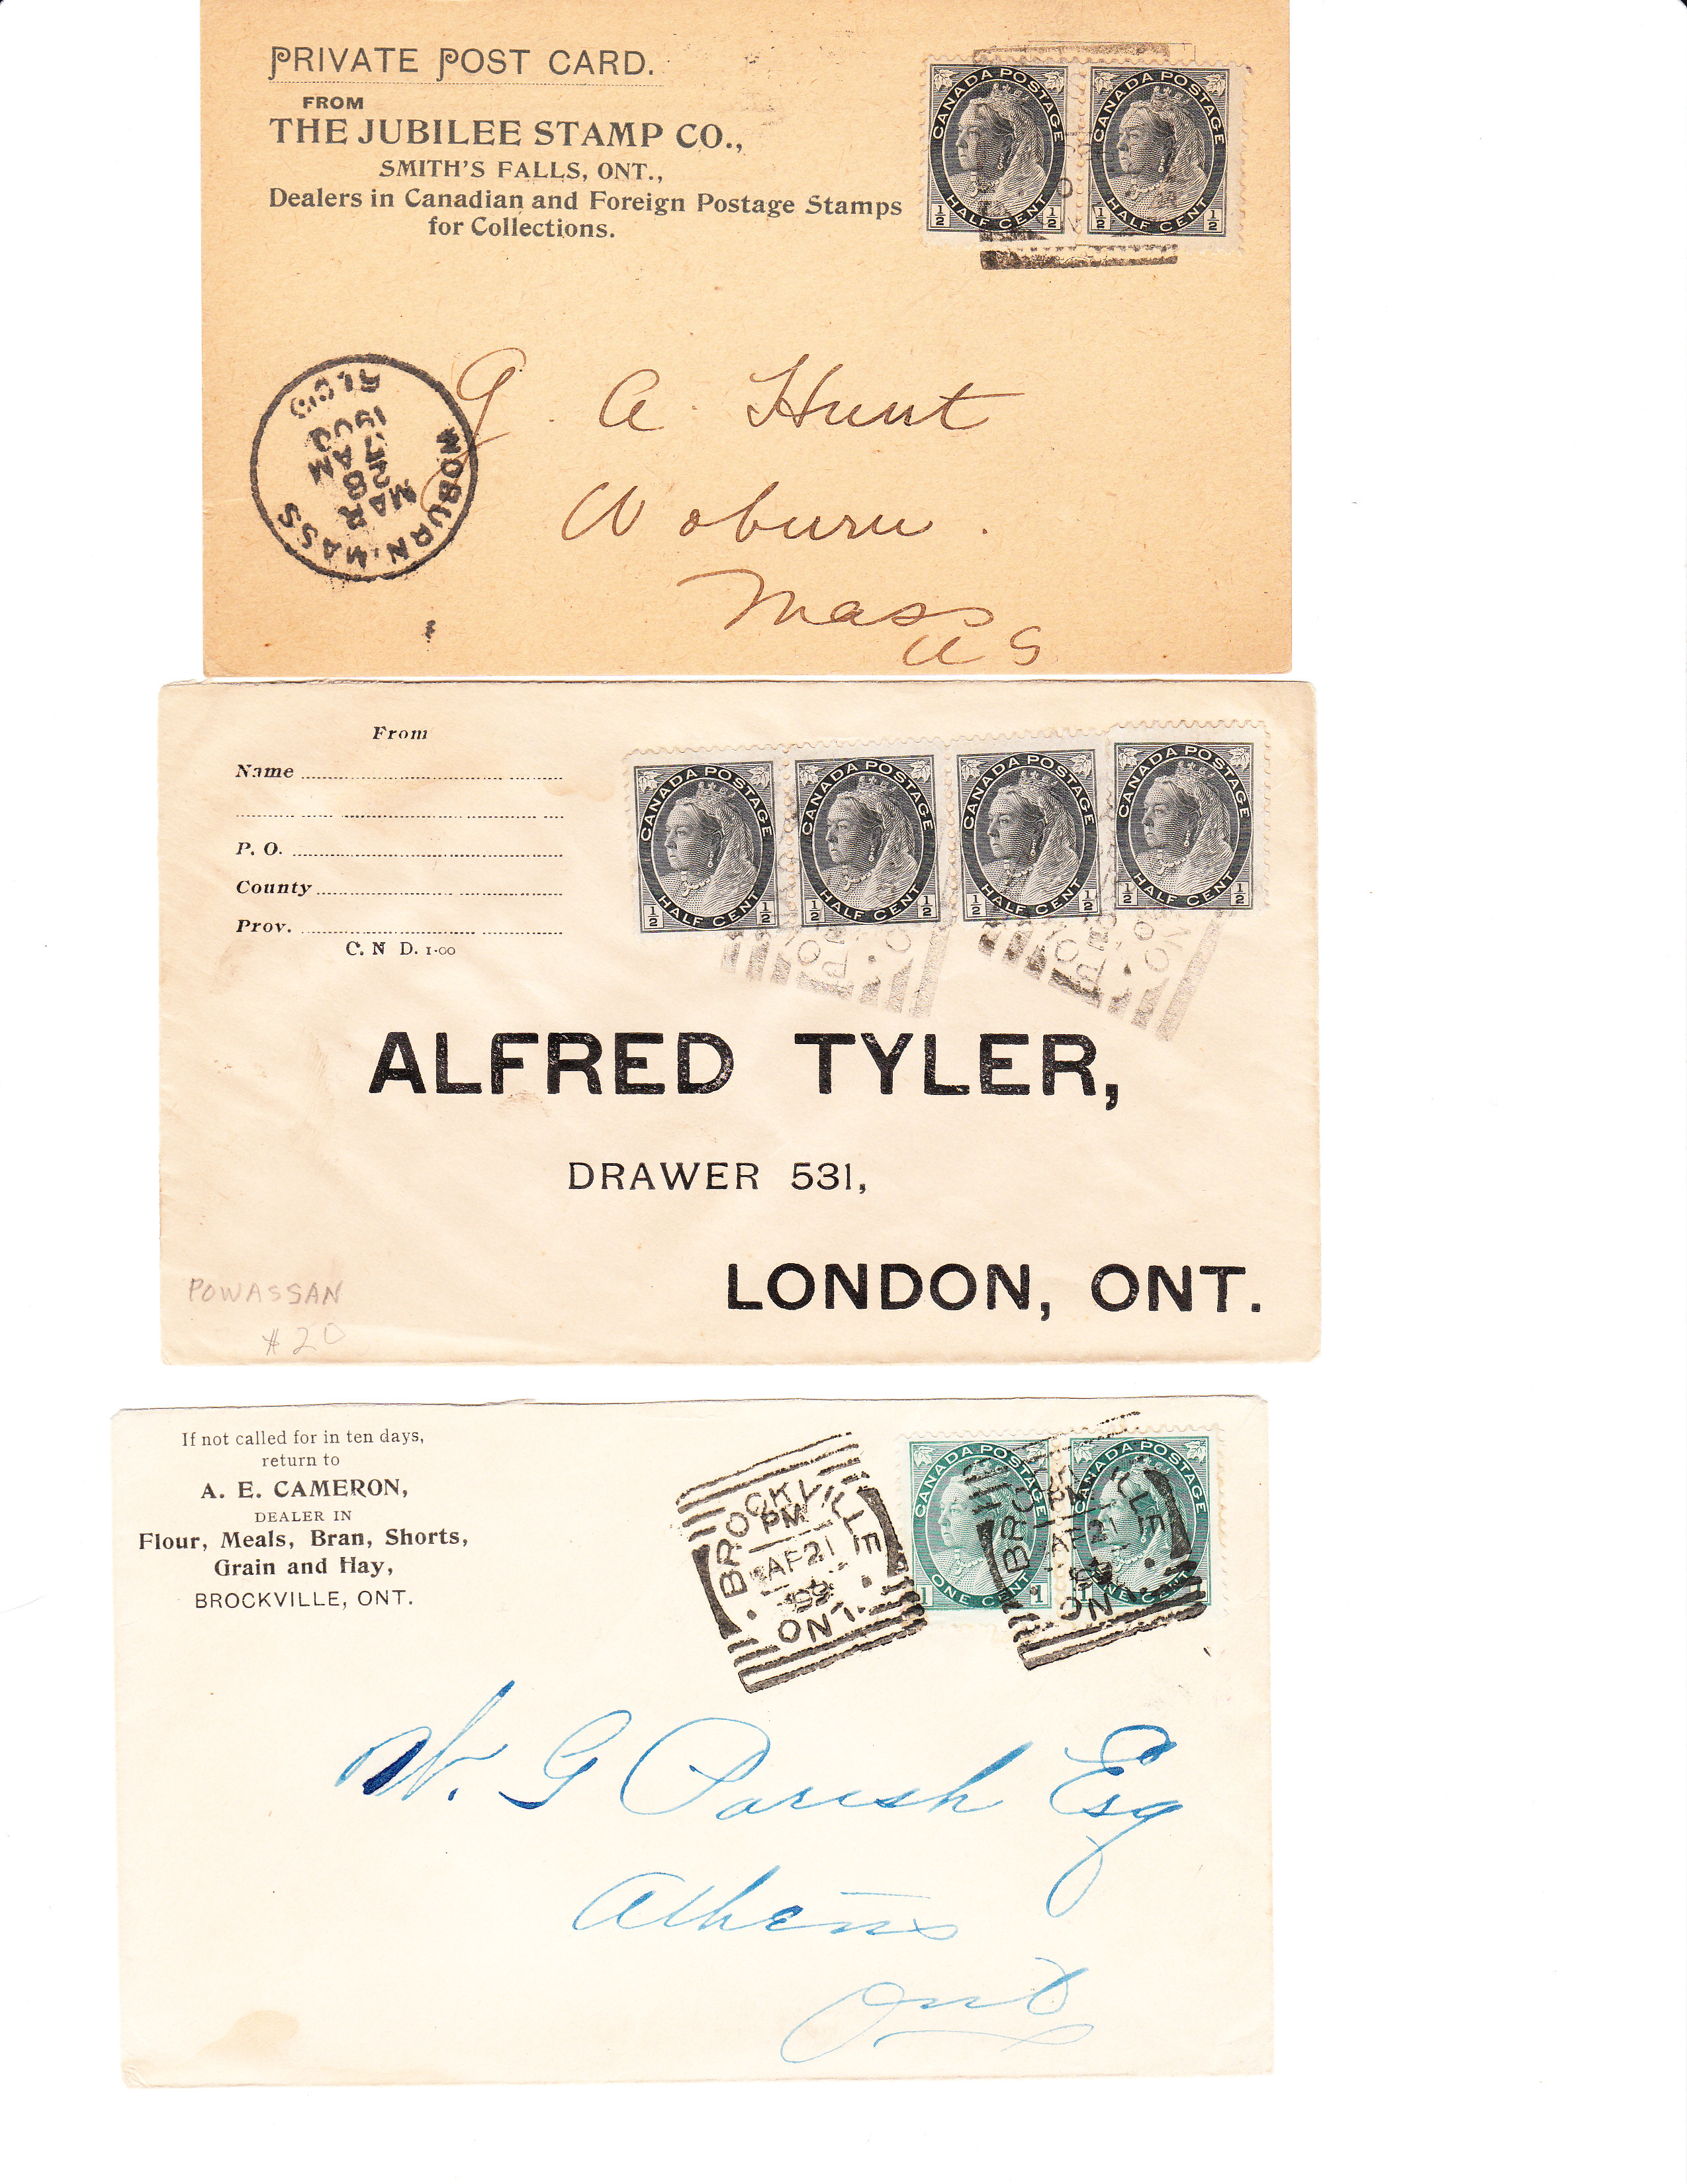 PRIVATE POST CARD.
FROM
THE JUBILEE STAMP CO.,
SMITH'S FALLS, ONT.,
Dealers in Canadian and Foreign Postage Stamps
for Collections.
CANADA POSTAGE
½ HALF CENT ½
CANADA POSTAGE
½ HALF CENT ½
WOBURN. MASS
MAR
12
7 AM
1900
REC'D
G. A. Hunt
Woburn.
Mass
U S
From
Name
P. O.
County
Prov.
C. N D. 1-00
CANADA POSTAGE
½ HALF CENT ½
CANADA POSTAGE
½ HALF CENT ½
CANADA POSTAGE
½ HALF CENT ½
CANADA POSTAGE
½ HALF CENT ½
ALFRED TYLER,
DRAWER 531,
LONDON, ONT.
POWASSAN
#20
If not called for in ten days,
return to
A. E. CAMERON,
DEALER IN
Flour, Meals, Bran, Shorts,
Grain and Hay,
BROCKVILLE, ONT.
BROCKVILLE
PM
AP 21
99
ONT.
CANADA POSTAGE
1 ONE CENT 1
CANADA POSTAGE
ONE CENT
W. G Parish Esq
Athens
Ont